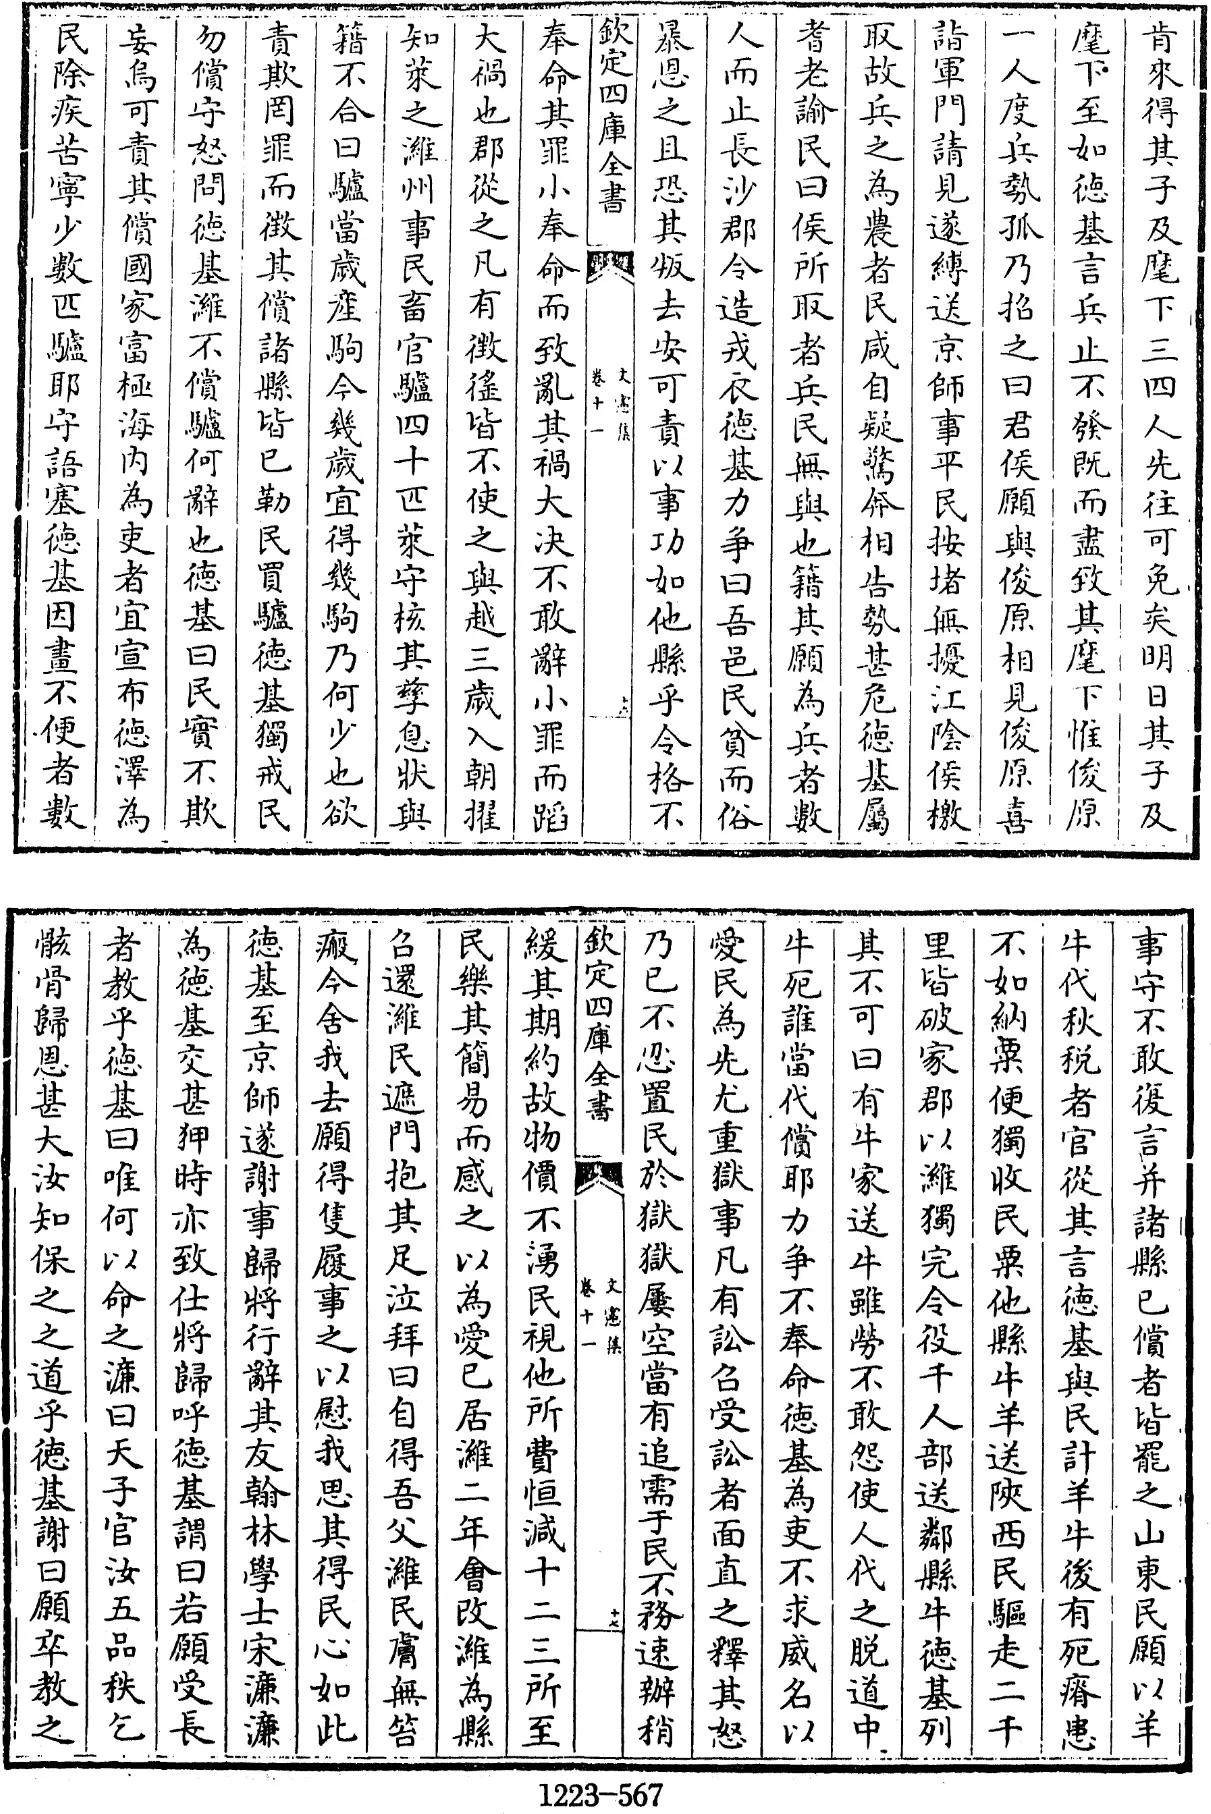 肯來得其子及麾下三四人先往可免矣明日其子及
麾下至如徳基言兵止不發既而盡致其麾下惟俊原
一人度兵勢孤乃招之曰君侯願與俊原相見俊原喜
詣軍門請見遂縛送京師事平民按堵無擾江陰侯檄
取故兵之為農者民咸自疑驚奔相告勢甚危徳基屬
耆老諭民曰侯所取者兵民無與也籍其願為兵者數
人而止長沙郡令造戎衣徳基力争曰吾邑民貧而俗
暴恩之且恐其叛去安可責以事功如他縣乎令格不
欽定四庫全書
文憲集
卷十一
十六
奉命其罪小奉命而致亂其禍大决不敢辭小罪而蹈
大禍也郡從之凡有徴徭皆不使之與越三歲入朝擢
知萊之濰州事民畜官驢四十匹萊守核其孳息狀與
籍不合曰驢當歲産駒今幾歲宜得幾駒乃何少也欲
責欺罔罪而徴其償諸縣皆已勒民買驢徳基獨戒民
勿償守怒問徳基濰不償驢何辭也徳基曰民實不欺
妄烏可責其償國家富極海内為吏者宜宣布徳澤為
民除疾苦寧少數匹驢耶守語塞徳基因畫不便者數
事守不敢復言并諸縣已償者皆罷之山東民願以羊
牛代秋税者官從其言徳基與民計羊牛後有死瘠患
不如納粟便獨收民粟他縣牛羊送陜西民驅走二千
里皆破家郡以濰獨完令役千人部送鄰縣牛徳基列
其不可曰有牛家送牛雖勞不敢怨使人代之脱道中
牛死誰當代償耶力争不奉命徳基為吏不求威名以
愛民為先尤重獄事凡有訟召受訟者面直之釋其怒
乃已不忍置民於獄獄屢空當有追需于民不務速辦稍
欽定四庫全書
文憲集
卷十一
十七
緩其期約故物價不湧民視他所費恒減十二三所至
民樂其簡易而感之以為愛已居濰二年會改濰為縣
召還濰民遮門抱其足泣拜曰自得吾父濰民膚無笞
瘢今舍我去願得隻履事之以慰我思其得民心如此
徳基至京師遂謝事歸將行辭其友翰林學士宋濂濂
為徳基交甚狎時亦致仕將歸呼徳基謂曰若願受長
者教乎徳基曰唯何以命之濂曰天子官汝五品秩乞
骸骨歸恩甚大汝知保之之道乎徳基謝曰願卒教之
1223-567